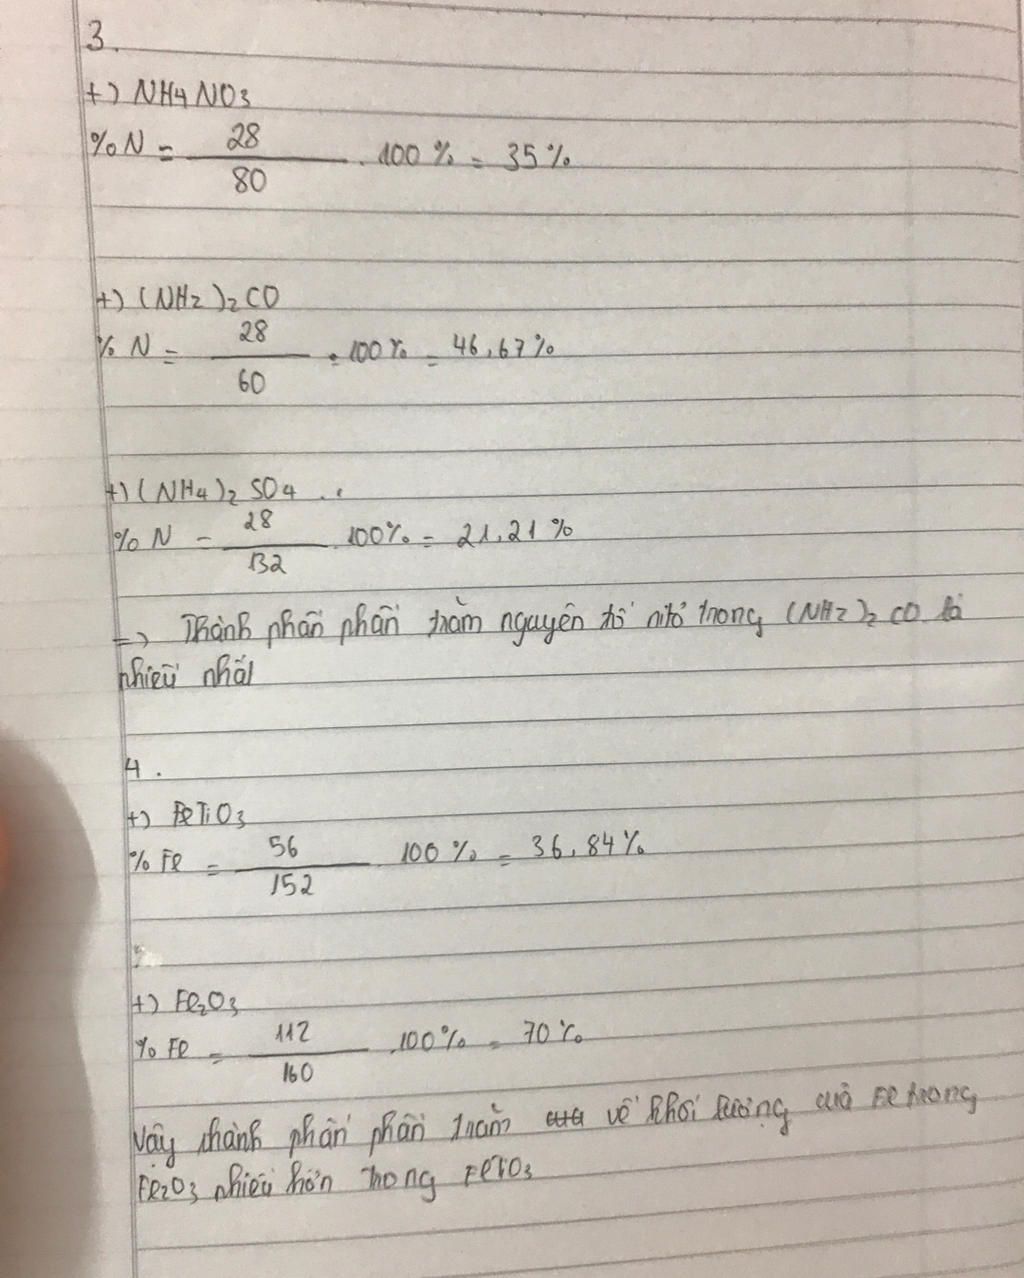 3.
+) NH4 NO3
%N = 28/80 . 100 % = 35 %
+) (NH2)2 CO
% N = 28/60 . 100% = 46,67%
+) (NH4)2 SO4 ..
% N = 28/132 100% = 21,21 %
=> Thành phần phần trăm nguyên tố nitơ trong (NH2)2 CO là
nhiều nhất
4.
+) FeTiO3
% Fe = 56/152 100 % = 36,84%
+) Fe2O3
% Fe = 112/160 .100% = 70%
Vậy thành phần phần trăm về khối lượng của Fe trong
Fe2O3 nhiều hơn trong FeTiO3